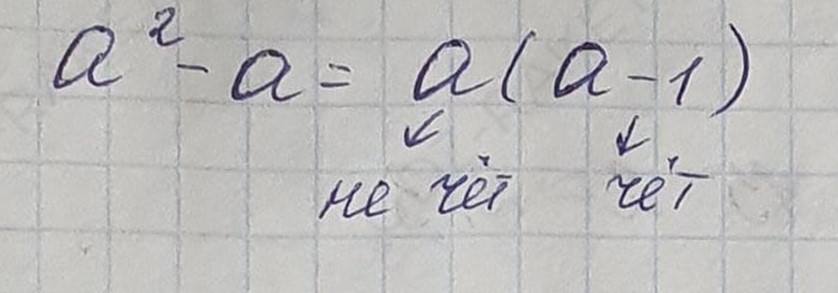 a² - a = a(a - 1)
↙ ↓
не чёт чёт